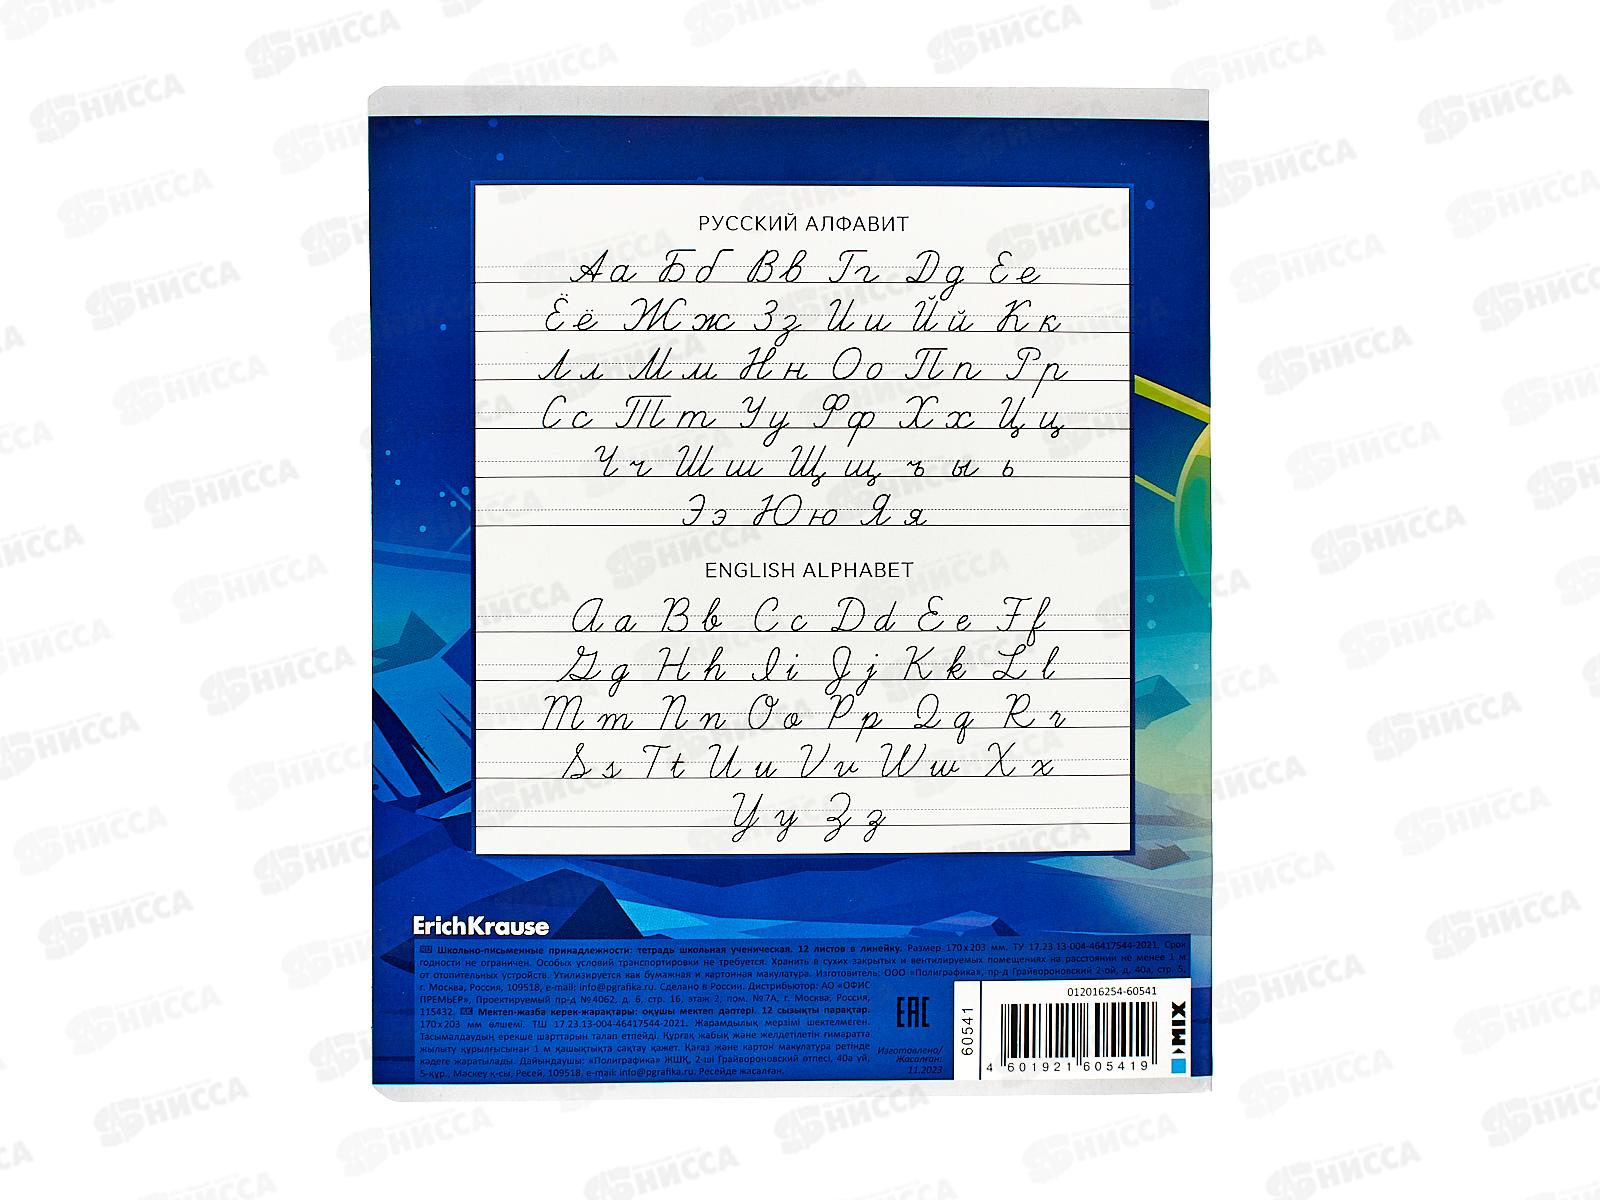 РУССКИЙ АЛФАВИТ
Аа Бб Вв Гг Дд Ее
Ёё Жж Зз Ии Йй Кк
Лл Мм Нн Оо Пп Рр
Сс Тт Уу Фф Хх Цц
Чч Шш Щщ ъ ы ь
Ээ Юю Яя
ENGLISH ALPHABET
Aa Bb Cc Dd Ee Ff
Gg Hh Ii Jj Kk Ll
Mm Nn Oo Pp Qq Rr
Ss Tt Uu Vv Ww Xx
Yy Zz
ErichKrause
RU Школьно-письменные принадлежности: тетрадь школьная ученическая. 12 листов в линейку. Размер 170х203 мм. ТУ 17.23.13-004-46417544-2021. Срок
годности не ограничен. Особых условий транспортировки не требуется. Хранить в сухих закрытых и вентилируемых помещениях на расстоянии не менее 1 м
от отопительных устройств. Утилизируется как бумажная и картонная макулатура. Изготовитель: ООО «Полиграфика», пр-д Грайвороновский 2-ой, д. 40а, стр. 5,
г. Москва, Россия, 109518, e-mail: info@pgrafika.ru. Сделано в России. Дистрибьютор: АО «ОФИС
ПРЕМЬЕР», Проектируемый пр-д №4062, д. 6, стр. 16, этаж 2, пом. №7А, г. Москва, Россия,
115432. KK Мектеп-жазба керек-жарақтары: оқушы мектеп дәптері. 12 сызықты парақтар.
170х203 мм өлшемі. ТШ 17.23.13-004-46417544-2021. Жарамдылық мерзімі шектелмеген.
Тасымалдаудың ерекше шарттарын талап етпейді. Құрғақ жабық және желдетілетін ғимаратта
жылыту құрылғысынан 1 м қашықтықта сақтау қажет. Қағаз және картон макулатура ретінде
кәдеге жаратылады. Дайындаушы: «Полиграфика» ЖШҚ, 2-ші Грайвороновский өтпесі, 40а үй,
5-құр., Мәскеу қ-сы, Ресей, 109518, e-mail: info@pgrafika.ru. Ресейде жасалған.
EAC
Изготовлено/
Жасалған:
11.2023
60541
012016254-60541
4 601921 605419
MIX
АБНИССА